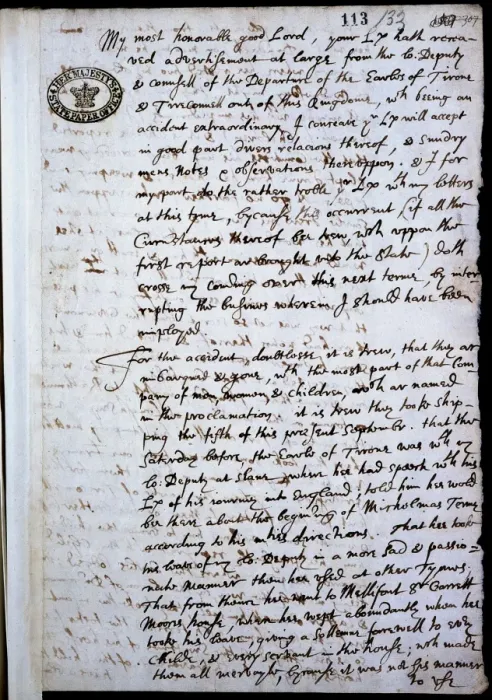 113
133
HER MAJESTY'S
STATE PAPER OFFICE
My most honorable good Lord, your Lp hath recea-
ved advertisement at large from the lo: Deputy
& counsell of the Departure of the Earles of Tirone
& Tirconnell out of this Kingdome, wch beeing an
accident extraordinary I conceave yr Lp will accept
in good part divers relacions thereof, & sundry
mens Notes & observations thereuppon. & I for
my part do the rather troble yr Lp wth my letters
at this tyme, bycause this occurrent (if all the
Circumstances thereof bee trew, wch uppon the
first report are brought unto the State) doth
crosse my coming over this next terme, by inter-
rupting the busines wherein I should have been
imployed.
For the accident, doubtlesse it is trew, that they ar
imbarqued & gone, wth the most part of that Com-
pany of men, women & children, wch ar named
in the proclamation. it is trew they tooke ship-
ping the fifth of this present September. that the
Saturday before the Earle of Tirone was wth my
lo: Deputy at Slane, where hee had speech wth his
Lp of his iourney into England; told him hee wold
bee there about the begining of Micholmas Terme
according to his mties directions. That hee tooke
his leave of my lo: Deputy in a more sad & passio-
nate manner then hee used at other Tymes.
That from thence hee went to Mellifont Sr Garrett
Moores house, where hee wept aboundantly when hee
tooke his leave, giving a sollemne farewell to every
Child, & every servant in the house; wch made
them all mervayle, bycause it was not his manner
to use